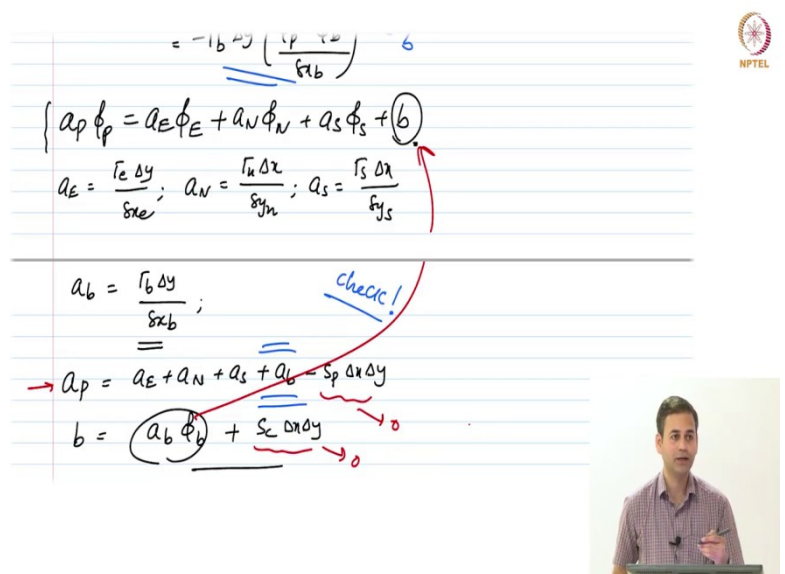 = -Γb Δy ( (ϕp - ϕb) / δxb ) b
NPTEL
{ aP ϕp = aE ϕE + aN ϕN + aS ϕS + b.
aE = Γe Δy / δxe ; aN = Γn Δx / δyn ; aS = Γs Δx / δys
ab = Γb Δy / δxb ; check!
→ aP = aE + aN + aS + ab - Sp Δx Δy → 0
b = ab ϕb + Sc Δx Δy → 0